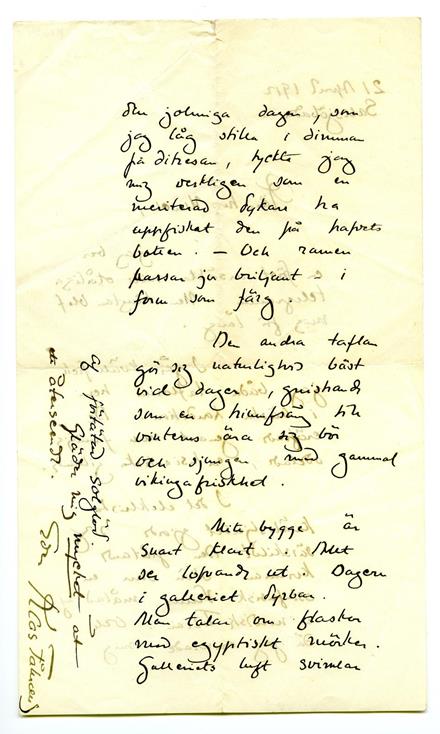 den jolmiga dagen, som
jag låg stilla i dimman
på ditresan, tyckte jag
mig verkligen som en
meriterad dykare ha
uppfisket den på hafvets
botten. — Och ramen
passar ju briljant i
form som färg.
Den andra taflan
gör sig naturligtvis bäst
vid dager, gnistrande
som en triumfsång till
vinterns ära sig bör
och sjungen med gammal
vikingafriskhet.
Mitt bygge är
snart klart. Allt
ser lofvande ut. Dagern
i galleriet dyrbar.
Man talar om flaskor
med egyptiskt mörker.
Galleriets luft svimlar
af förtätad solglöd.
Gläder mig mycket åt
ett återseende.
Klas Fåhræus
21 April 1912